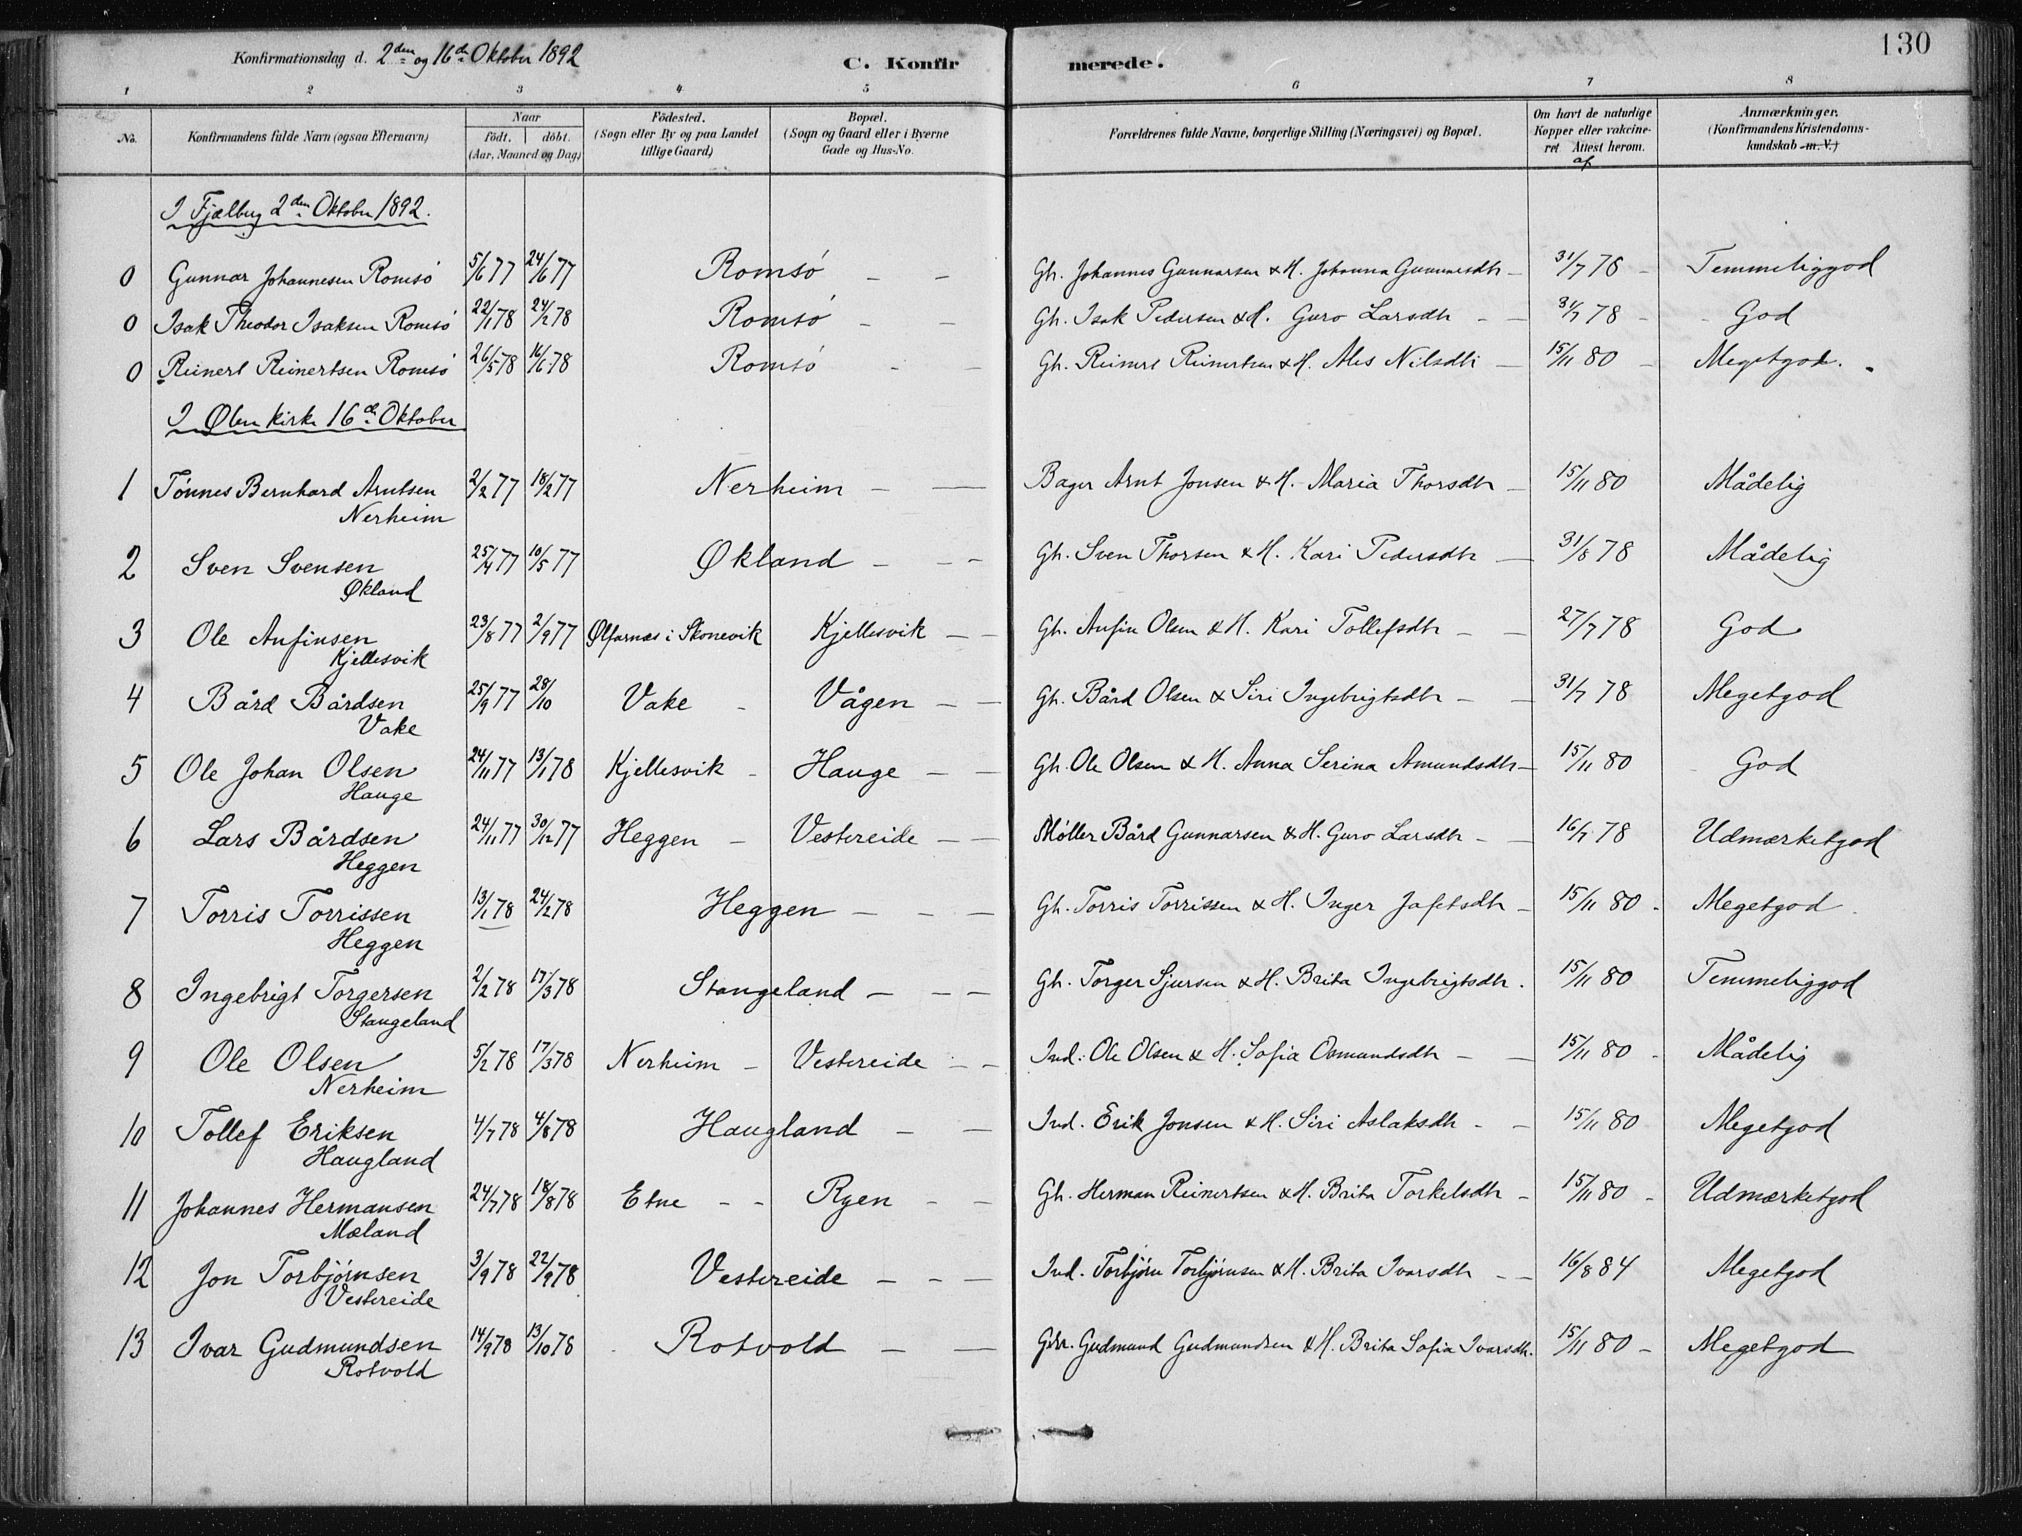 Konfirmationsdag d. 2den og 16de Oktober 1892
C. Konfir merede. 130
1 2 3 4 5 6 7 8
No. Konfirmandens fulde Navn (ogsaa Efternavn) Naar födt. döbt. (Aar, Maaned og Dag) Födested. (Sogn eller By og paa Landet tillige Gaard) Bopæl. (Sogn og Gaard eller i Byerne Gade og Hus-No. Forældrenes fulde Navne, borgerlige Stilling (Næringsvei) og Bopæl. Om havt de naturlige Kopper eller vakcineret Attest herom. af Anmærkninger. (Konfirmandens Kristendomskundskab m.V.)
I Fjælberg 2den Oktober 1892.
0 Gunnar Johannesen Romsö 5/6 77 24/6 77 Romsö - - Gh. Johannes Gunnarsen & H. Johanna Gunnarsdtr - 31/7 78 - Temmeliggod
0 Isak Theodor Isaksen Romsö 22/1 78 24/2 78 Romsö - - Gh. Isak Pedersen & H. Guro Larsdtr - - 31/7 78 - - God
0 Reinert Reinertsen Romsö 26/5 78 16/6 78 Romsö - - Gh. Reinert Reinertsen & H. Ales Nilsdtr - 15/11 80 - Megetgod.
I Ølen Kirke 16de Oktober
1 Tönnes Bernhard Arntsen 2/2 77 18/2 77 Nerheim - - Bager Arnt Jonsen & H. Maria Thorsdtr - 15/11 80 Mådelig
Nerheim
2 Sven Svensen 25/4 77 10/5 77 Økland - - - Gh. Sven Thorsen & H. Kari Pedersdtr - 31/8 78 Mådelig
Økland
3 Ole Anfinsen 23/8 77 2/9 77 Ølfarnæs i Skonevik Kjellesvik - - Gh. Anfin Olsen & H. Kari Tollefsdtr - - 27/7 78 God
Kjellesvik
4 Bård Bårdsen 25/9 77 28/10 Vake - Vågen - - Gh. Bård Olsen & Siri Ingebrigtsdtr - - 31/7 78 Megetgod
Vake
5 Ole Johan Olsen 24/11 77 13/1 78 Kjellesvik - Hauge - - Gh. Ole Olsen & H. Anna Serina Amundsdtr - 15/11 80 - God
Hauge
6 Lars Bårdsen 24/11 77 30/12 77 Heggen - Vestereide - - Møller Bård Gunnarsen & H. Guro Larsdtr - - 16/7 78 Udmærketgod
Heggen
7 Torris Torrissen 13/1 78 24/2 78 Heggen - - - Gh. Torris Torrissen & H. Inger Jafetsdtr - 15/11 80 - Megetgod
Heggen
8 Ingebrigt Torgersen 2/2 78 17/3 78 Stangeland - - - Gh. Torger Sjursen & H. Brita Ingebrigtsdtr. 15/11 80 Temmeliggod
Stangeland
9 Ole Olsen 5/2 78 17/3 78 Nerheim - Vestereide - - Ind. Ole Olsen & H. Sofia Osmundsdtr - - 15/11 80 - Mådelig
Nerheim
10 Tollef Eriksen 4/7 78 4/8 78 Haugland - - Ind. Erik Jonsen & H. Siri Aslaksdtr - - 15/11 80 Megetgod
Haugland
11 Johannes Hermansen 24/7 78 18/8 78 Etne - - Ryen - - Gh. Herman Reinertsen & H. Brita Torkelsdtr - 15/11 80 - Udmærketgod
Mæland
12 Jon Torbjørnsen 3/9 78 22/9 78 Vestereide - - - Ind. Torbjørn Torbjørnsen & H. Brita Ivarsdtr - - 16/8 84 Megetgod
Vestereide
13 Ivar Gudmundsen 14/9 78 13/10 78 Rotvold - - Gudmund Gudmundsen & H. Brita Sofia Ivarsdtr. 15/11 80 - Megetgod
Rotvold